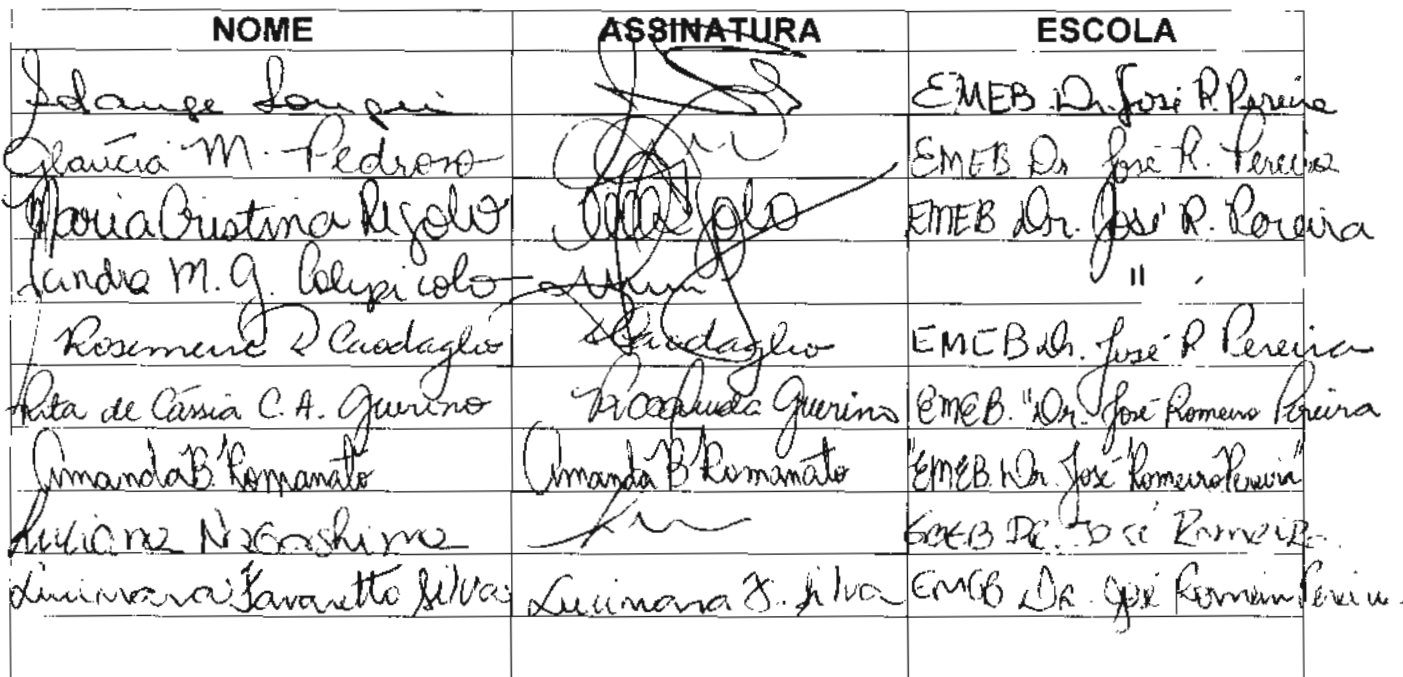 NOME ASSINATURA ESCOLA
Solange EMEB Dr. José R. Pereira
Glaúcia M. Pedroso EMEB Dr. José R. Pereira
Maria Cristina Rigolo EMEB Dr. José R. Pereira
Sandra M. G. "
Rosemeire Caodaglio Caodaglio EMEB Dr. José R Pereira
Rita de Cássia C. A. Guerino Guerino EMEB. "Dr. José Romeiro Pereira
Amanda B. Romanato Amanda B Romanato "EMEB. Dr. José Romeiro Pereira"
Luciana Nagashima EMEB Dr. José Romeiro
Lucimara Favaretto Silva Lucimara F. Silva EMEB Dr. José Romeiro Pereira